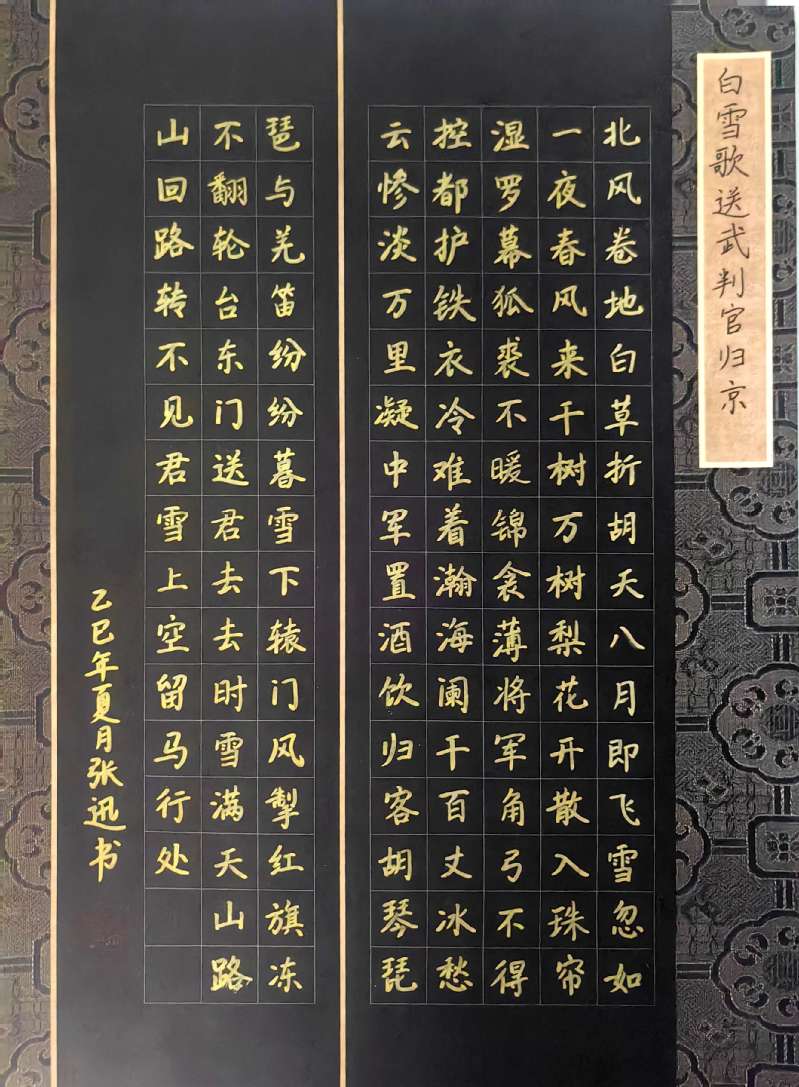 白雪歌送武判官归京
北风卷地白草折胡天八月即飞雪忽如
一夜春风来千树万树梨花开散入珠帘
湿罗幕狐裘不暖锦衾薄将军角弓不得
控都护铁衣冷难着瀚海阑干百丈冰愁
云惨淡万里凝中军置酒饮归客胡琴琵
琶与羌笛纷纷暮雪下辕门风掣红旗冻
不翻轮台东门送君去去时雪满天山路
山回路转不见君雪上空留马行处
乙巳年夏月张迅书